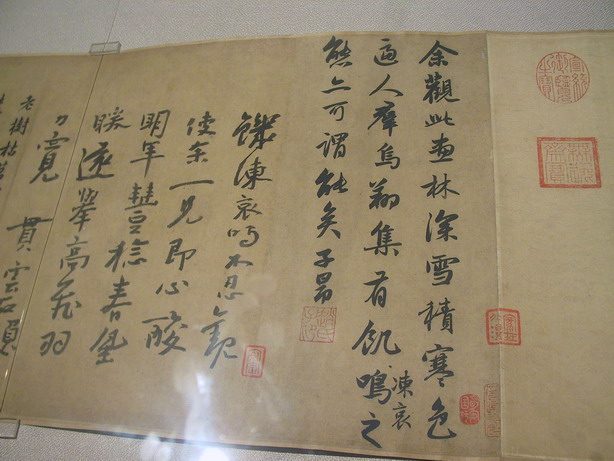 余觀此畫林深雪積寒色
逼人羣烏翔集有飢鳴凍哀之
態亦可謂能矣子昂
饑凍哀鳴不忍觀
使余一見即心酸
明年豐稔春
暖遂翬高飛羽
力寬 貫雲石
老樹枯